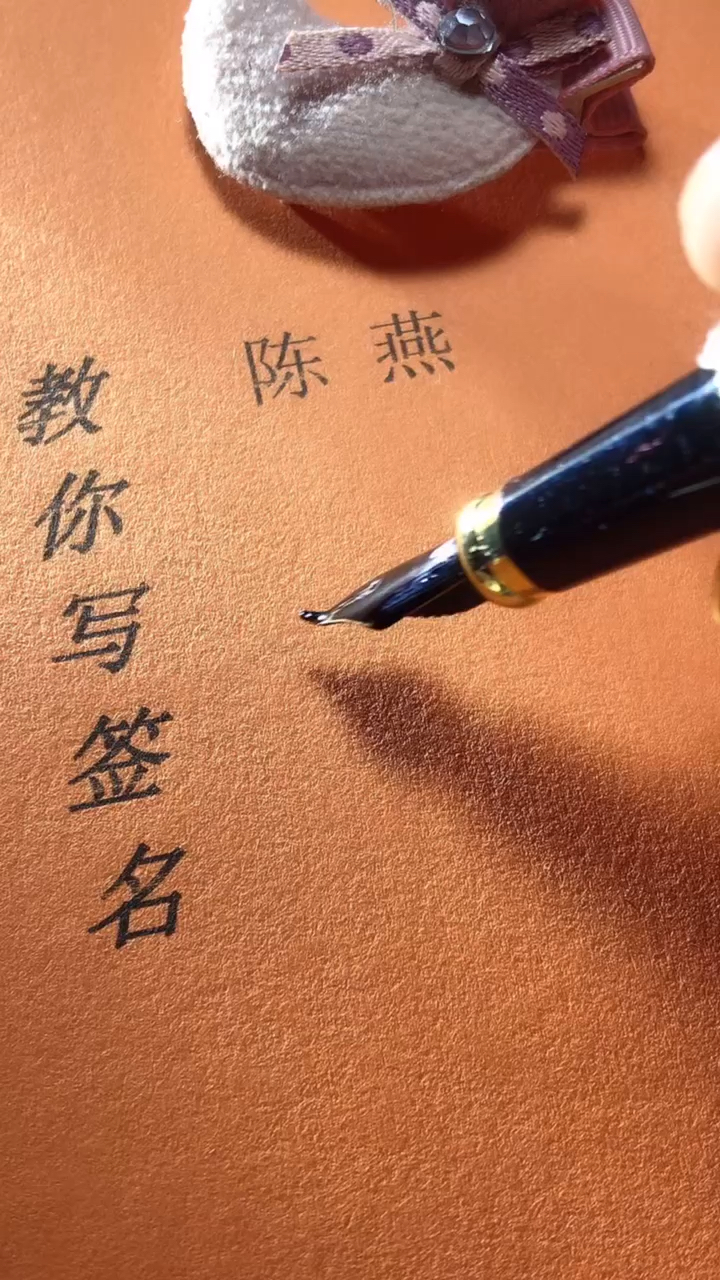 陈燕
教你写签名